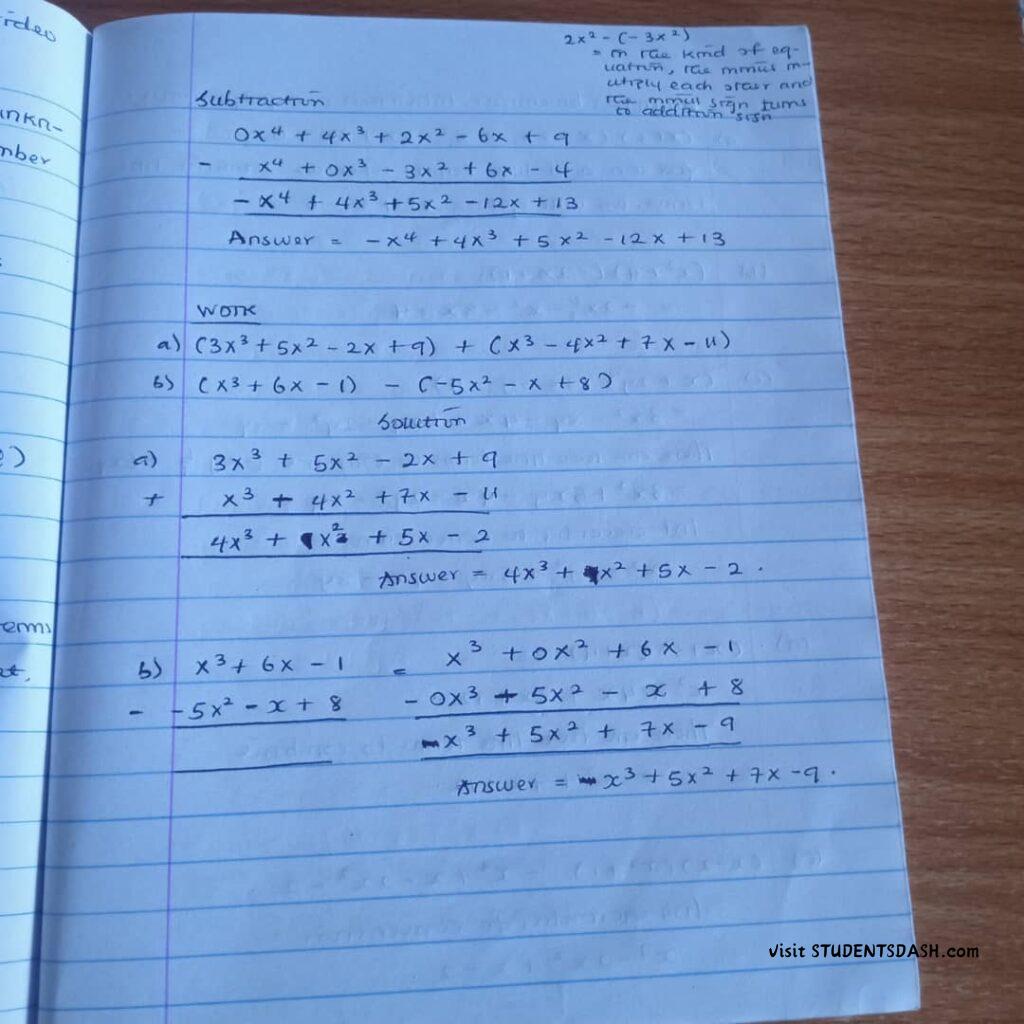 2x² - (-3x²)
= in the kind of eq-
uation, the minus m-
ultiply each other and
the minus sign turns
to addition sign
Subtraction
0x⁴ + 4x³ + 2x² - 6x + 9
- x⁴ + 0x³ - 3x² + 6x - 4
- x⁴ + 4x³ + 5x² - 12x + 13
Answer = -x⁴ + 4x³ + 5x² - 12x + 13
Work
a) (3x³ + 5x² - 2x + 9) + (x³ - 4x² + 7x - 11)
b) (x³ + 6x - 1) - (-5x² - x + 8)
Solution
a) 3x³ + 5x² - 2x + 9
+ x³ - 4x² + 7x - 11
4x³ + x² + 5x - 2
Answer = 4x³ + x² + 5x - 2.
b) x³ + 6x - 1 = x³ + 0x² + 6x - 1
- -5x² - x + 8 - 0x³ - 5x² - x + 8
x³ + 5x² + 7x - 9
Answer = x³ + 5x² + 7x - 9.
video
nkn-
mber
erms
visit STUDENTSDASH.com